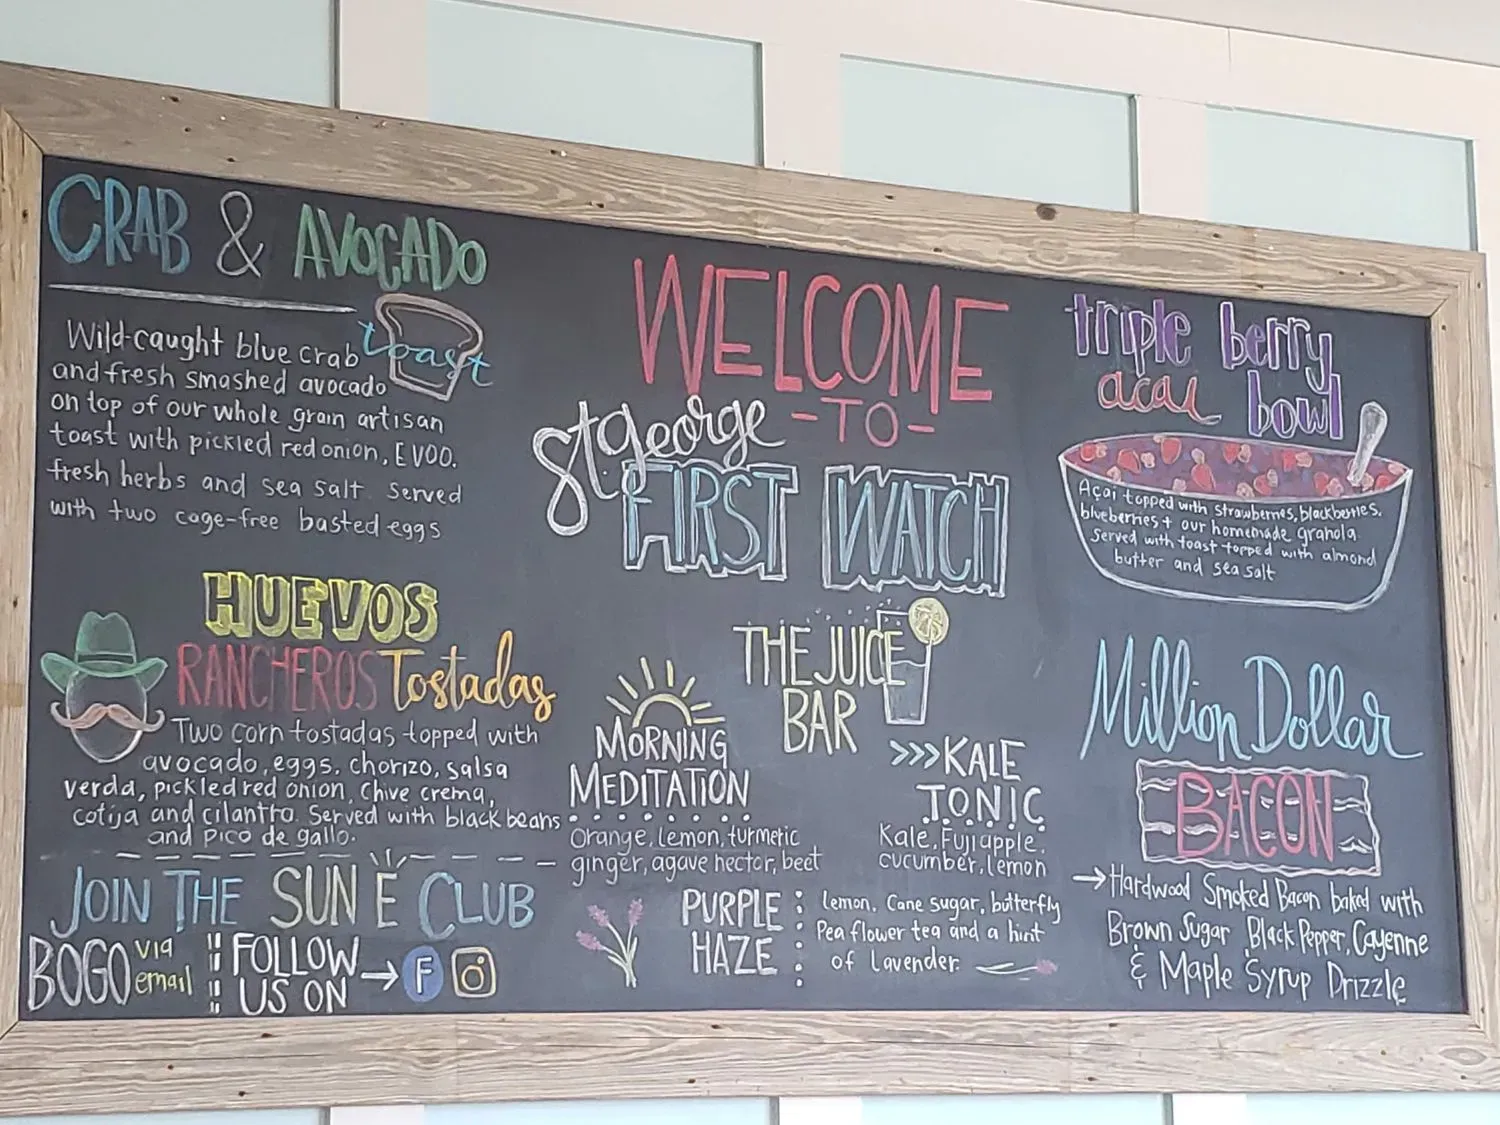 CRAB & AVOCADO
toast
Wild-caught blue crab
and fresh smashed avocado
on top of our whole grain artisan
toast with pickled red onion, EVOO.
fresh herbs and sea salt. Served
with two cage-free basted eggs
HUEVOS
RANCHEROS Tostadas
Two corn tostadas topped with
avocado, eggs, chorizo, salsa
verda, pickled red onion, chive crema,
cotija and cilantro. Served with black beans
and pico de gallo.
JOIN THE SUN E CLUB
BOGO via email
FOLLOW
US ON
F
WELCOME
-TO-
St george
FIRST WATCH
THE JUICE
BAR
MORNING
MEDITATION
Orange, lemon, turmeric
ginger, agave nector, beet
>>>KALE
TONIC
Kale, Fuji apple,
cucumber, lemon
PURPLE
HAZE
lemon, Cane sugar, butterfly
Pea flower tea and a hint
of lavender.
triple berry
acai bowl
Açai topped with strawberries, blackberries,
blueberries + our homemade granola.
Served with toast topped with almond
butter and sea salt
Million Dollar
BACON
Hardwood Smoked Bacon baked with
Brown Sugar, Black Pepper, Cayenne
& Maple Syrup Drizzle